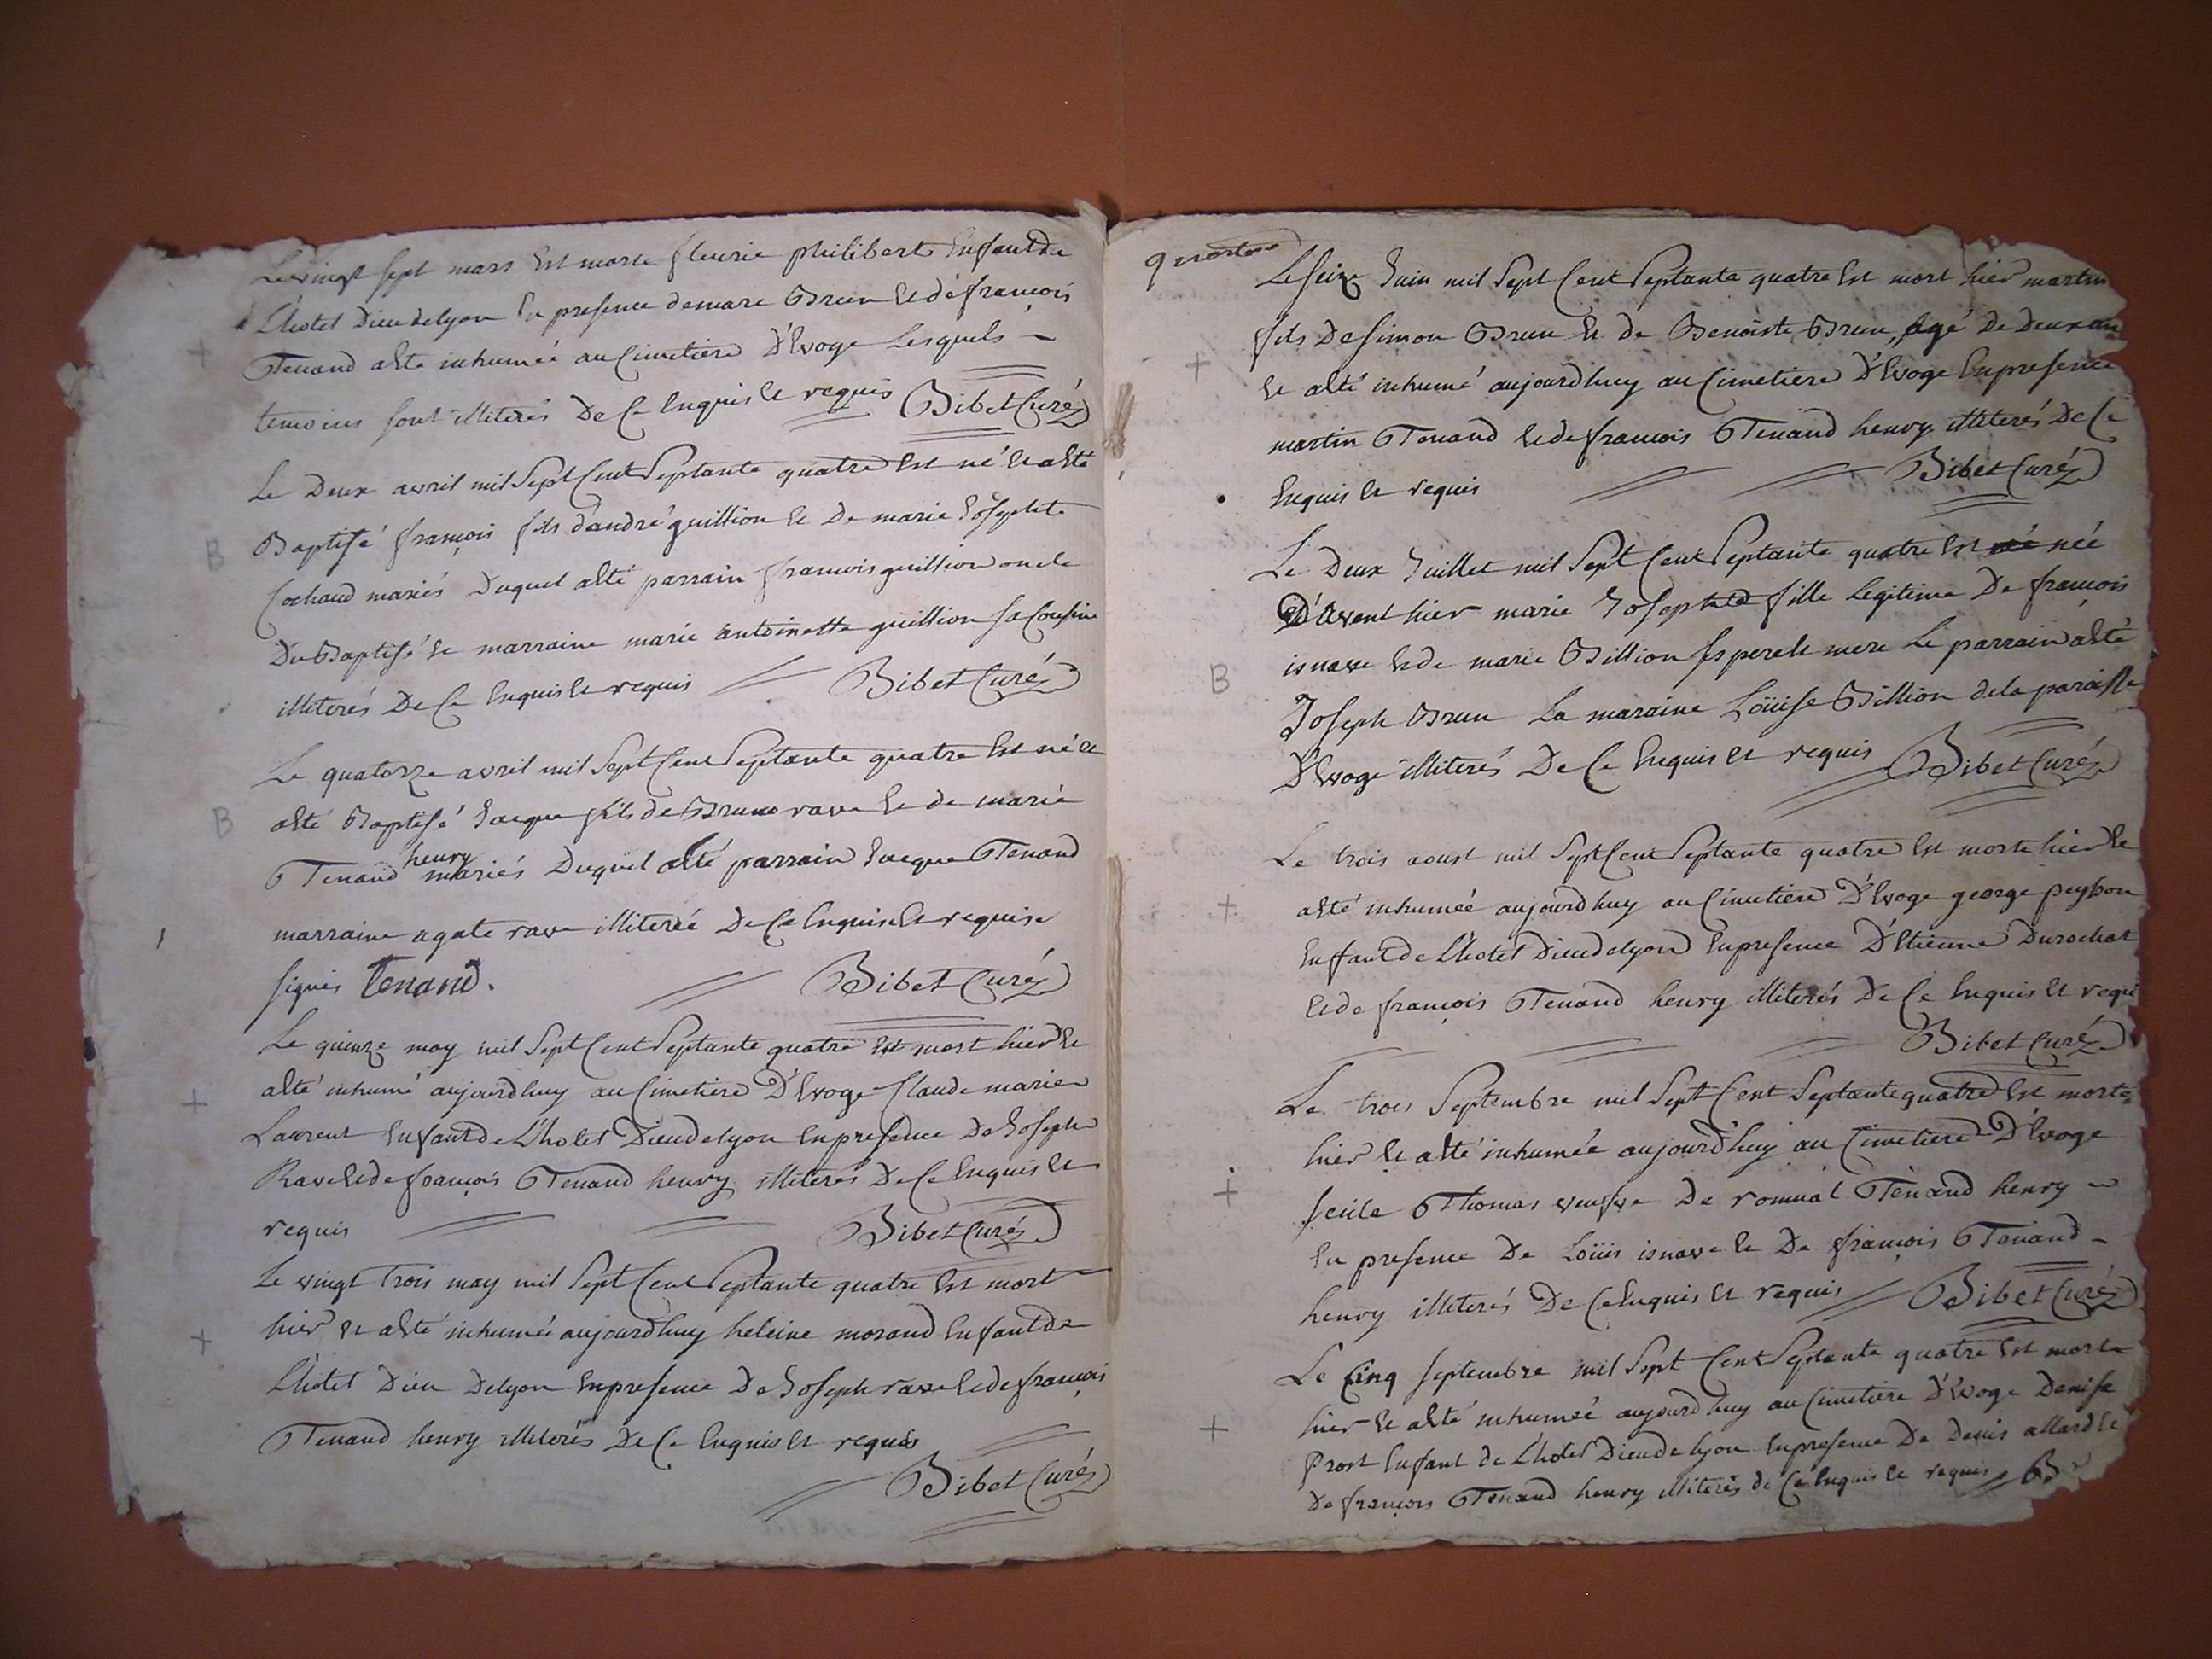 Le vingt sept mars Est morte fleurie philibert Enfant de
L'hotel Dieu de lyon En presence de marc Brun Et de françois
+ Tenand a Eté inhumée au Cimetiere D'Evoge Lesquels
temoins sont illiterés De Ce Enquis Et requis Bibet Curé
Le Deux avril mil Sept Cent Septante quatre Est né Et a Eté
B Baptisé françois fils d'andré guillion Et De marie Josephte
Cochaud mariés Duquel a Eté parrain francois guillion oncle
Du Baptisé Et marraine marie antoinette guillion sa Cousine
illiterés De Ce Enquis Et requis Bibet Curé
Le quatorze avril mil Sept Cent Septante quatre Est né Et
B a Eté Baptisé Jacque fils de Bruno rave Et de marie
henry
Tenand mariés Duquel a Eté parrain Jacque Tenand
marraine agate rave illiterée De Ce Enquise Et requise
signés Tenand. Bibet Curé
Le quinze may mil Sept Cent Septante quatre Est mort hier Et
+ a Eté inhumé aujourdhuy au Cimetiere D'Evoge Claude marie
Laurent Enfant de L'hotel Dieu de lyon En presence De Joseph
Rave Et de françois Tenand henry illiterés De Ce Enquis Et
requis Bibet Curé
Le vingt trois may mil Sept Cent Septante quatre Est mort
+ hier Et a Eté inhumée aujourdhuy heleine morand Enfant de
L'hotel Dieu De lyon En presence De Joseph rave Et de françois
Tenand henry illiterés De Ce Enquis Et requis
Bibet Curé
Le seize Juin mil Sept Cent Septante quatre Est mort hier martin
fils De simon Brun Et de Benoiste Brun, agé De Deux an
+ Et a Eté inhumé aujourdhuy au Cimetiere D'Evoge En presence
martin Tenand Et de francois Tenand henry illiterés De Ce
Enquis Et requis Bibet Curé
Le Deux Juillet mil Sept Cent Septante quatre Est né née
D'avent hier marie Josephte fille Legitime De françois
B isnave Et de marie Billion ses pere Et mere Le parrain a Eté
Joseph Brun La maraine Loüise Billion de la paroisse
D'Evoge illiterés De Ce Enquis Et requis Bibet Curé
Le trois aoust mil Sept Cent Septante quatre Est morte hier Et
+ a Eté inhumée aujourdhuy au Cimetiere D'Evoge george peysson
Enfant de L'hotel Dieu de lyon En presence D'Etienne Durochat
Et de françois Tenand henry illiterés De Ce Enquis Et requi
Bibet Curé
Le trois Septembre mil Sept Cent Septante quatre Est morte
hier Et a Eté inhumée aujourd'huy au Cimetiere D'Evoge
+ Thomas veufve De romual Tenand henry
En presence De Loüis isnave Et De françois Tenand
henry illiterés De Ce Enquis Et requis Bibet Curé
Le Cinq septembre mil Sept Cent Septante quatre Est morte
+ hier Et a Eté inhumée aujourdhuy au Cimetiere D'Evoge Denise
Prost Enfant de L'hotel Dieu de lyon En presence De Denis allard Et
De françois Tenand henry illiterés de Ce Enquis Et requis B